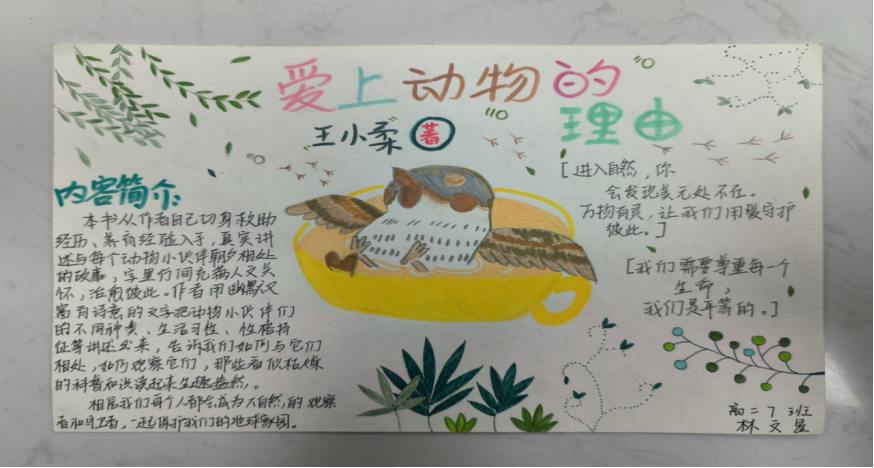 爱上动物的
理由
王小柔 著
内容简介:
本书从作者自己切身救助
经历、养育经验入手,真实讲
述与每个动物小伙伴朝夕相处
的故事,字里行间充满人文关
怀,治愈彼此。作者用幽默又
富有诗意的文字把动物小伙伴们
的不同种类、生活习性、性格特
征等讲述出来,告诉我们如何与它们
相处,如何观察它们,那些看似枯燥
的科普知识读起来生趣盎然。
相居我们每个人都会成为大自然的观察
者和守卫者,一起保护我们的地球家园。
[进入自然,你
会发现美无处不在。
万物有灵,让我们用爱守护
彼此。]
[我们需要尊重每一个
生命,
我们是平等的。]
高二7班
林文